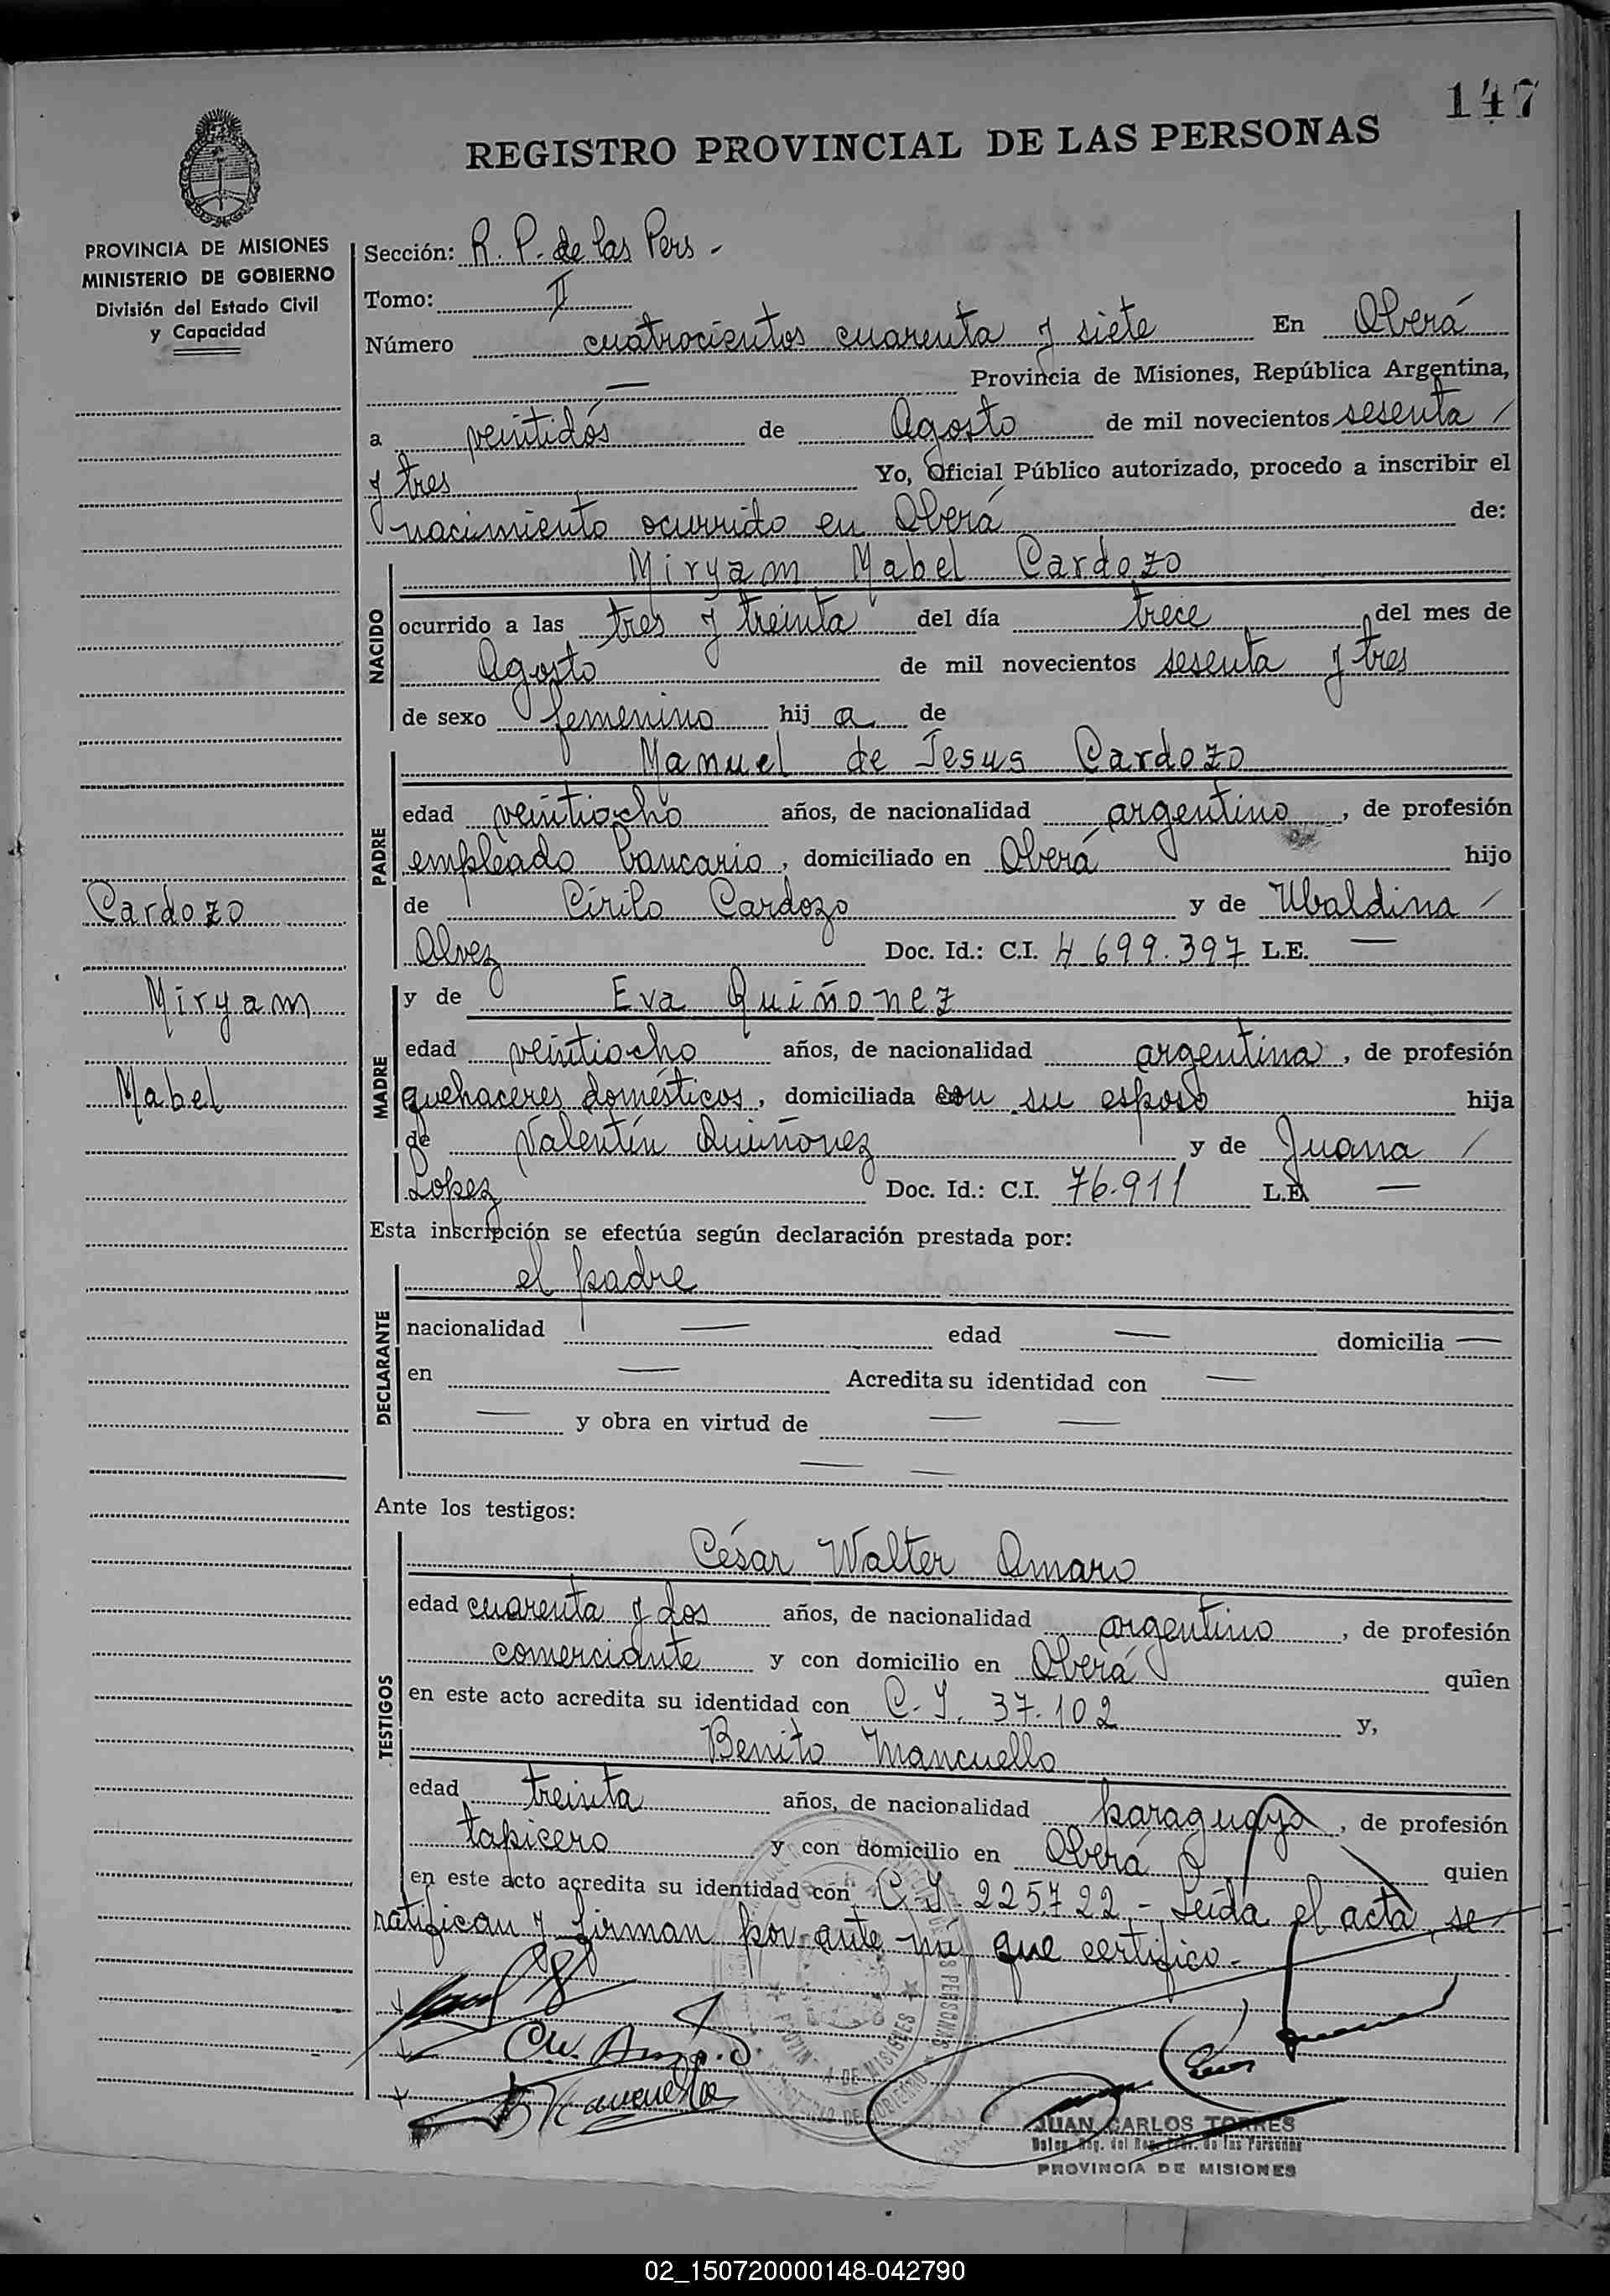 147
REGISTRO PROVINCIAL DE LAS PERSONAS
PROVINCIA DE MISIONES
MINISTERIO DE GOBIERNO
División del Estado Civil
y Capacidad
Cardozo
Miryam
Mabel
Sección: R. P. de las Pers -
Tomo: II
Número cuatrocientos cuarenta y siete En Oberá
— Provincia de Misiones, República Argentina,
a veintidós de Agosto de mil novecientos sesenta /
y tres Yo, Oficial Público autorizado, procedo a inscribir el
nacimiento ocurrido en Oberá de:
NACIDO
Miryam Mabel Cardozo
ocurrido a las tres y treinta del día trece del mes de
Agosto de mil novecientos sesenta y tres
de sexo femenino hij a de
PADRE
Manuel de Jesus Cardozo
edad veintiocho años, de nacionalidad argentino, de profesión
empleado bancario, domiciliado en Oberá hijo
de Cirilo Cardozo y de Ubaldina /
Alvez Doc. Id.: C.I. 4.699.397 L.E. —
MADRE
y de Eva Quiñonez
edad veintiocho años, de nacionalidad argentina, de profesión
quehaceres domésticos, domiciliada con su esposo hija
de Valentín Quiñonez y de Juana /
Lopez Doc. Id.: C.I. 76.911 L.E. —
Esta inscripción se efectúa según declaración prestada por:
DECLARANTE
el padre
nacionalidad — edad — domicilia —
en — Acredita su identidad con —
— y obra en virtud de — —
— —
Ante los testigos:
TESTIGOS
César Walter Amaro
edad cuarenta y dos años, de nacionalidad argentino, de profesión
comerciante y con domicilio en Oberá quien
en este acto acredita su identidad con C.I. 37.102 y,
Benito Mancuello
edad treinta años, de nacionalidad paraguayo, de profesión
tapicero y con domicilio en Oberá quien
en este acto acredita su identidad con C.I. 225.722.- Leída el acta, se
ratifican y firman por ante mí que certifico.-
JUAN CARLOS TORRES
PROVINCIA DE MISIONES
02_150720000148-042790